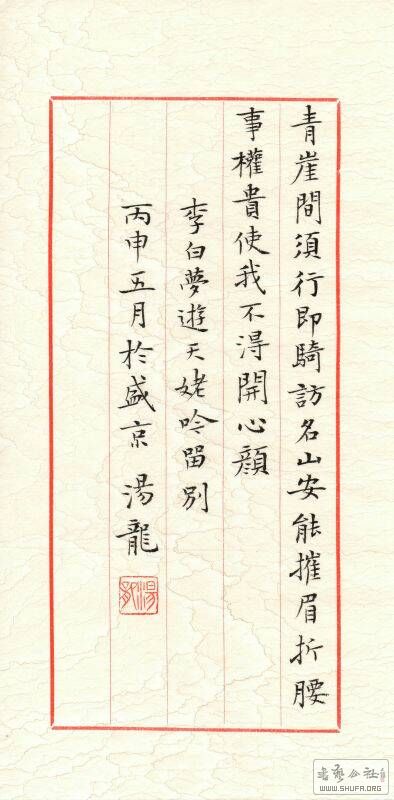 青崖間須行即騎訪名山安能摧眉折腰
事權貴使我不得開心顔
李白夢遊天姥吟留別
丙申五月於盛京 湯龍
湯龍
書藝公社
WWW.SHUFA.ORG